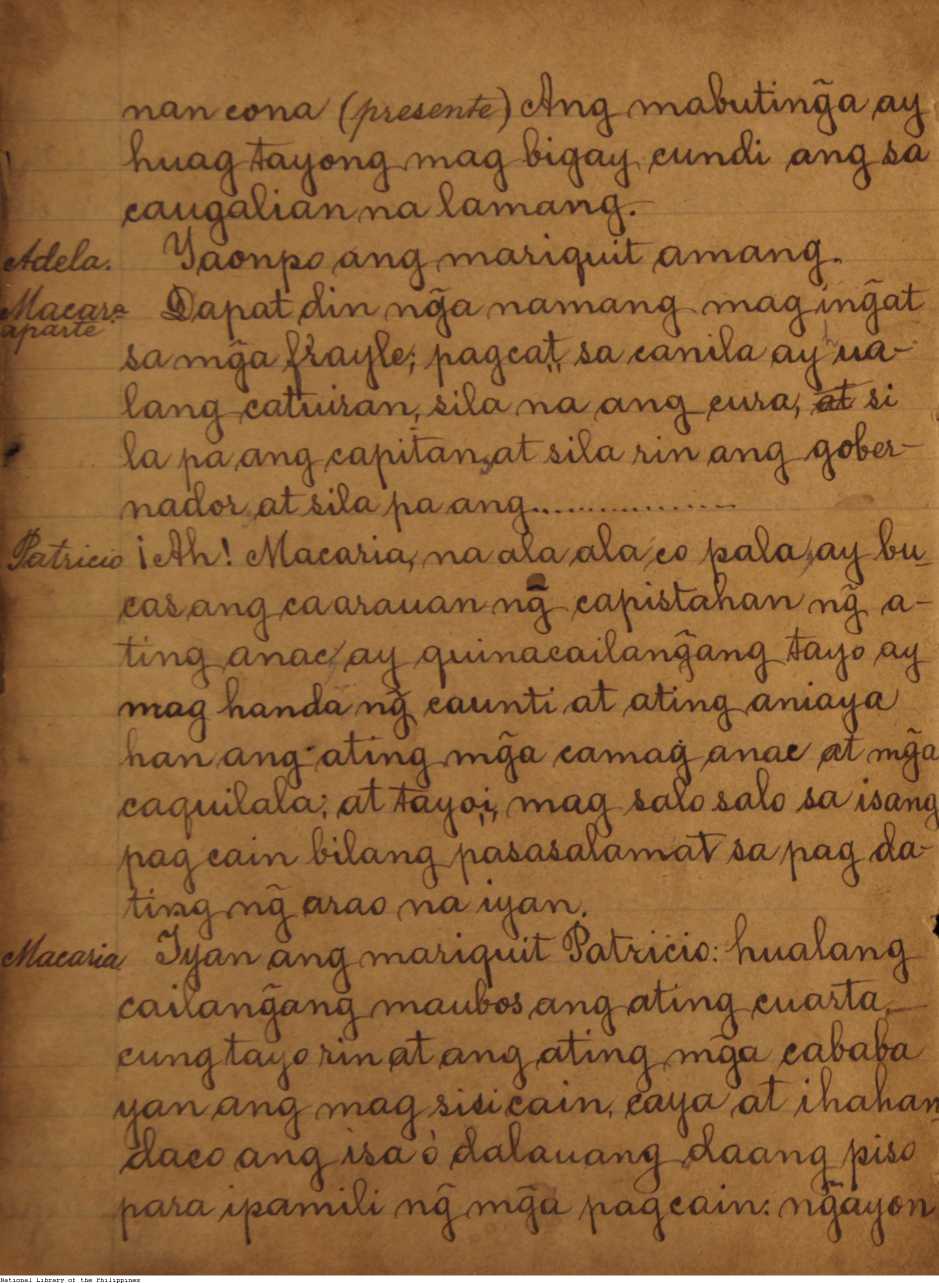 nan cona (presente) Ang mabutin̄ga ay
huag tayong mag bigay cundi ang sa
caugalian na lamang.
Adela. Yaonpo ang mariquit amang.
Macara. Dapat din n̄ga namang mag in̄gat
aparte
sa m̄ga frayle; pagcat, sa canila ay ua-
lang catuiran, sila na ang cura, at si
la pa ang capitan, at sila rin ang gober-
nador at sila pa ang................
Patricio ¡Ah! Macaria, na ala ala co pala, ay bu-
cas ang caarauan n̄g capistahan n̄g a-
ting anac, ay quinacailan̄gang tayo ay
mag handa n̄g caunti at ating aniaya
han ang ating m̄ga camag anac at m̄ga
caquilala; at tayoi, mag salo salo sa isang
pag cain bilang pasasalamat sa pag da-
ting n̄g arao na iyan.
Macaria Iyan ang mariquit Patricio: hualang
cailan̄gang maubos ang ating cuarta,
cung tayo rin at ang ating m̄ga cababa
yan ang mag sisicain, caya at ihahan
daco ang isa ó dalauang daang piso
para ipamili n̄g m̄ga pagcain: n̄gayon
National Library of the Philippines